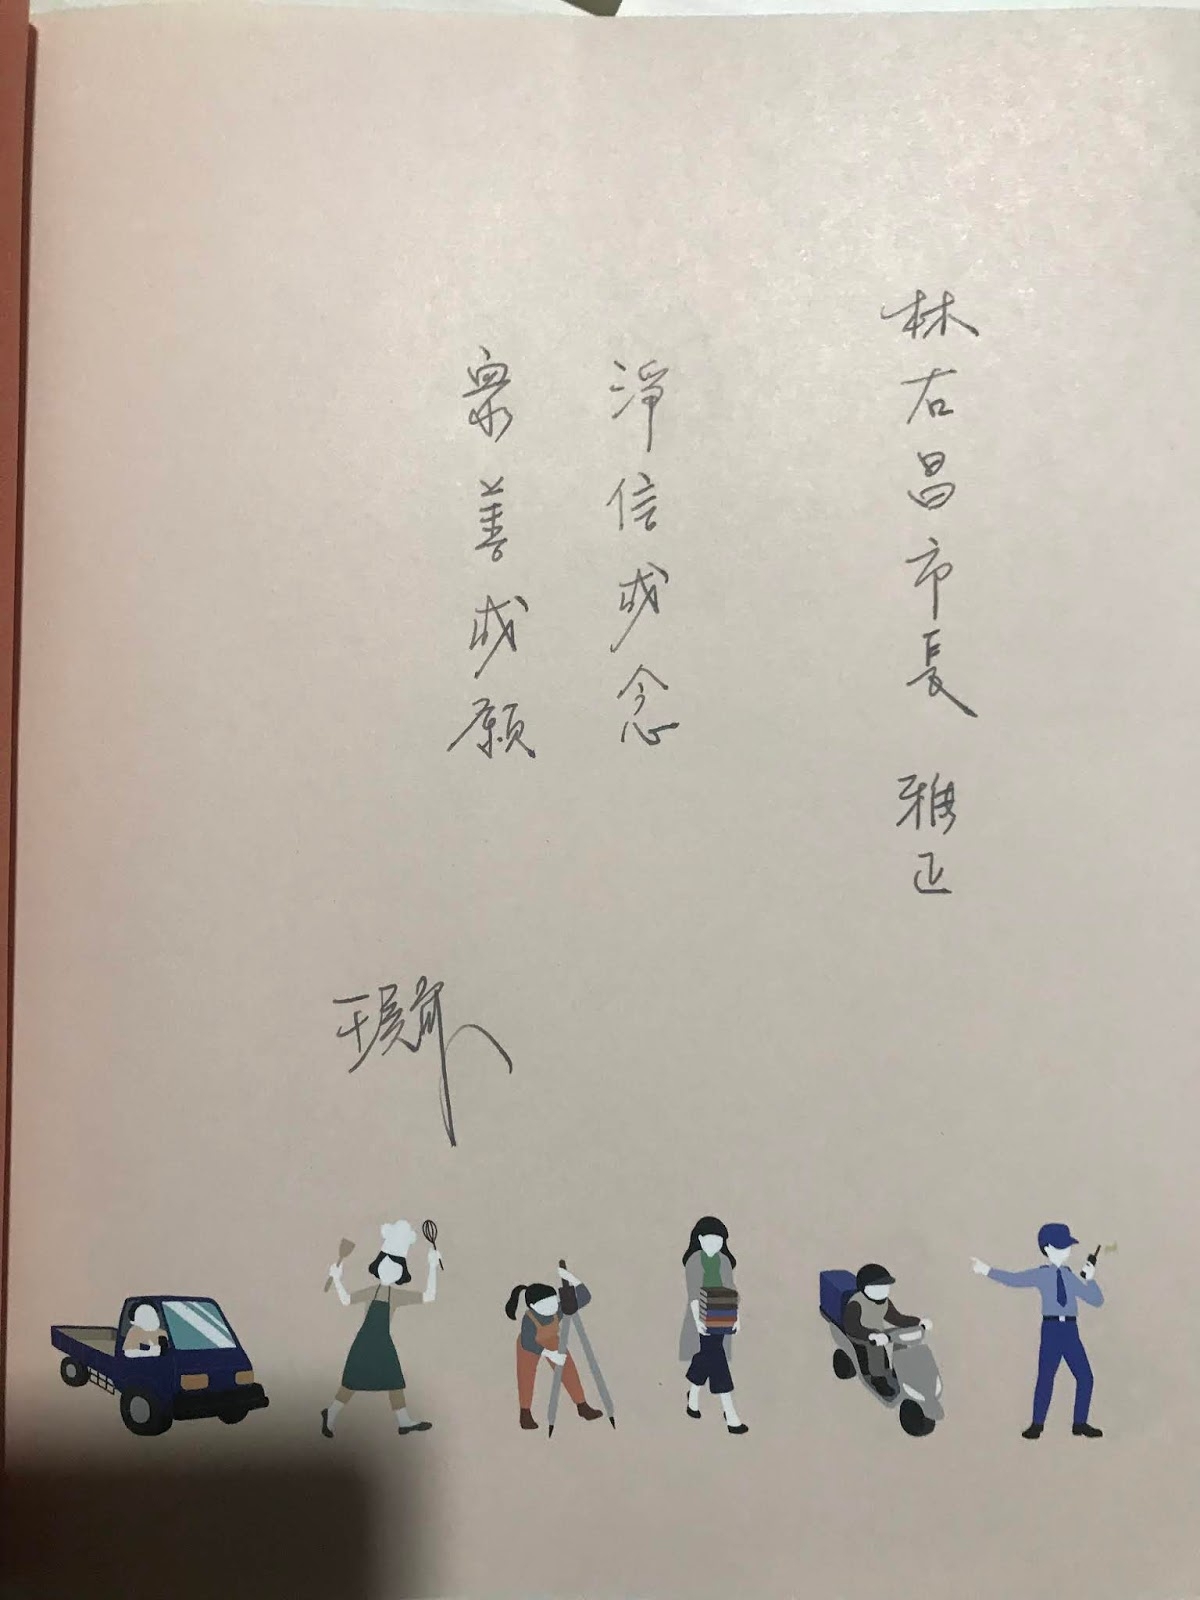 林右昌市長 雅正
淨信成念
眾善成願